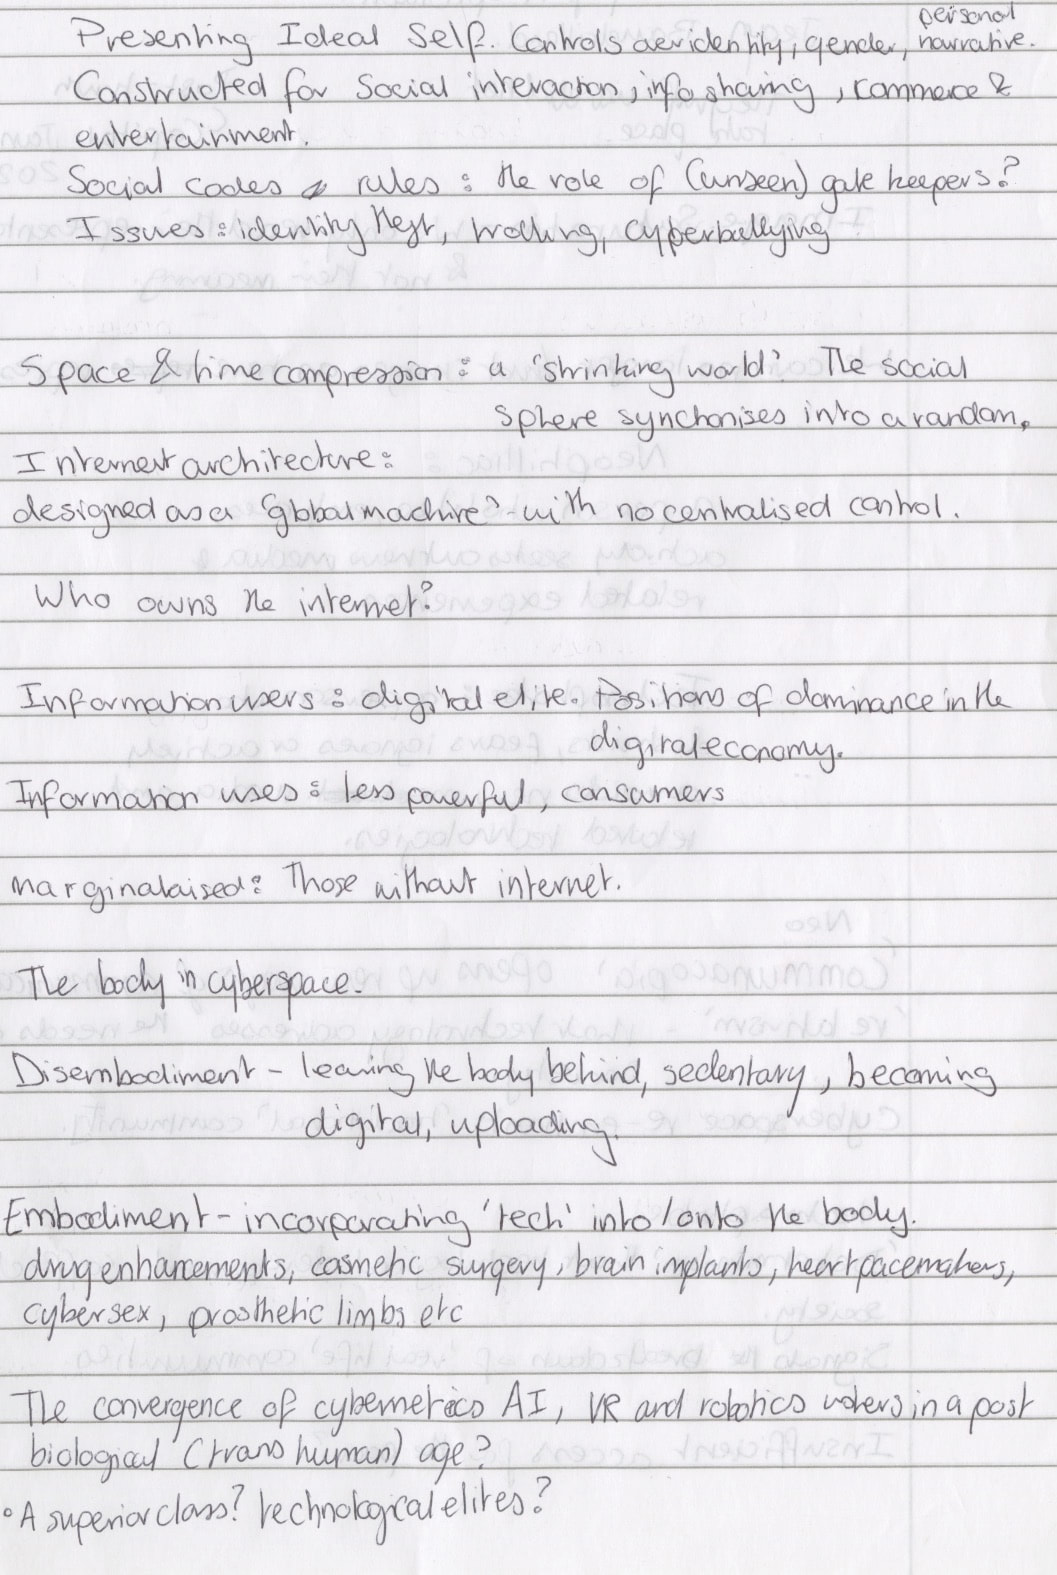 personal
Presenting Ideal Self. Controls over identity, gender, narrative.
Constructed for Social interaction, info sharing, commerce &
entertainment.
Social codes & rules: the role of (unseen) gate keepers?
Issues: identity theft, trolling, cyberbullying
Space & time compression: a 'shrinking world'. The social
sphere synchonises into a random.
Internet architecture:
designed as a 'global machine' - with no centralised control.
Who owns the internet?
Information users: digital elite. Positions of dominance in the
digital economy.
Information uses: less powerful, consumers
marginalaised: Those without internet.
The body in cyberspace.
Disembodiment - leaving the body behind, sedentary, becoming
digital, uploading.
Embodiment - incorporating 'tech' into/onto the body.
drug enhancements, cosmetic surgery, brain implants, heart pacemakers,
cybersex, prosthetic limbs etc
The convergence of cybernetics AI, VR and robotics ushers in a post
biological (trans human) age?
• A superior class? technological elites?